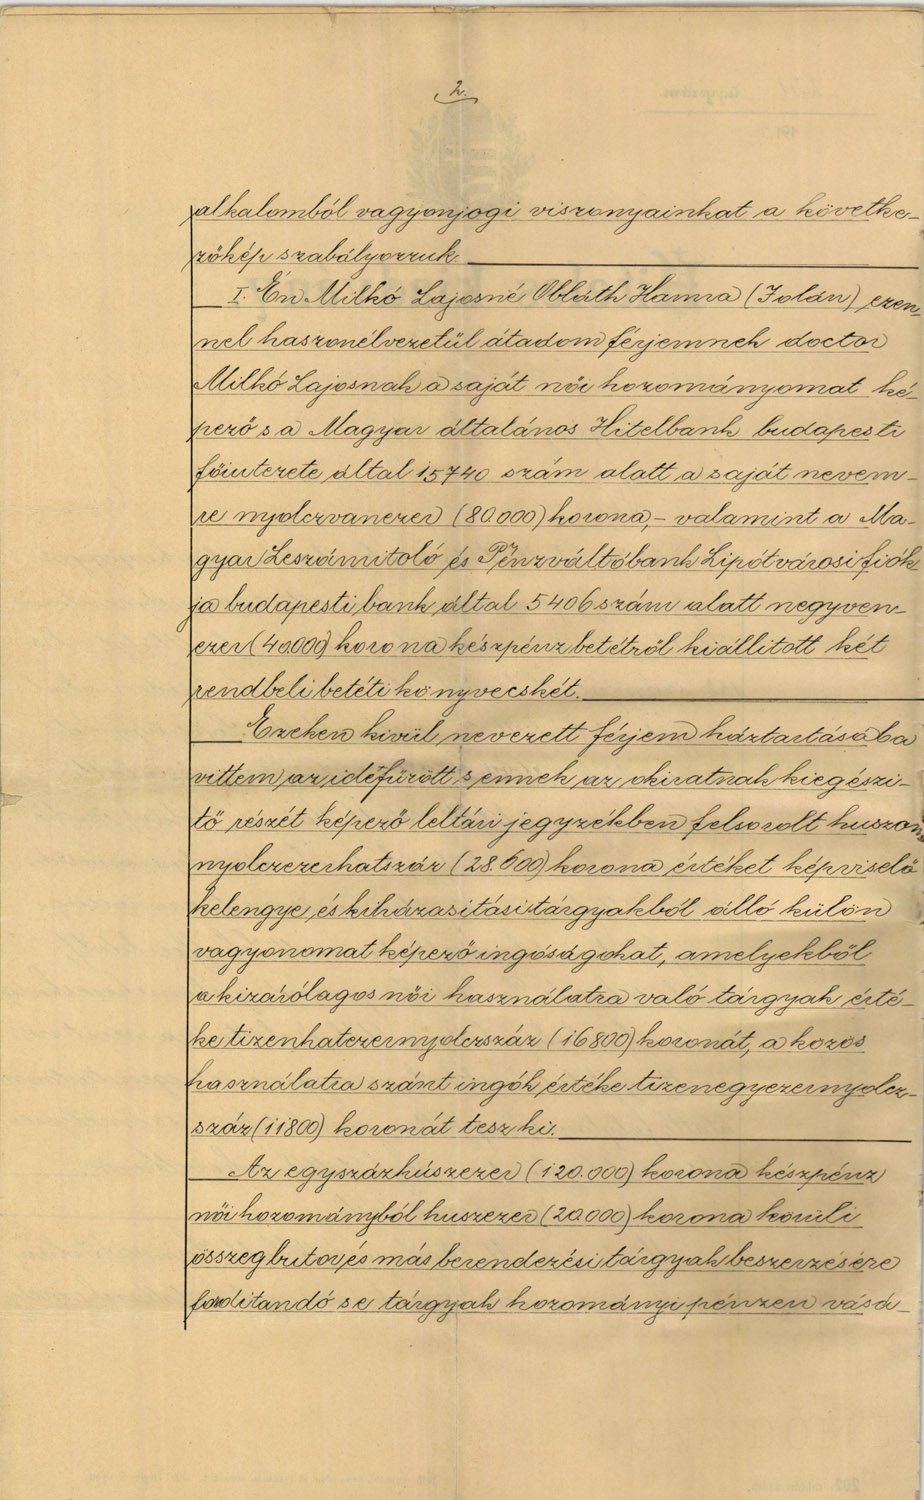 2.
alkalomból vagyonjogi viszonyainkat a követke-
zőkép szabályozzuk.
I. Én Milkó Lajosné Obláth Hanna (Jolán) ezen-
nel haszonélvezetül átadom férjemnek doctor
Milkó Lajosnak a saját női hozományomat ké-
pező s a Magyar általános Hitelbank budapesti
főintezete által 15740 szám alatt a saját nevem-
re nyolczvanezer (80.000) korona,- valamint a Ma-
gyar Leszámitoló és Pénzváltóbank Lipótvárosi fiók-
ja budapesti bank által 5406 szám alatt negyven-
ezer (40.000) korona készpénz betétről kiállitott két
rendbeli betéti könyvecskét.
Ezeken kivül nevezett férjem háztartásába
vittem az idefűzött s ennek az okiratnak kiegészi-
tő részét képező leltári jegyzékben felsorolt huszon
nyolczezerhatszáz (28.600) korona értéket képviselő
kelengye és kiházasitási tárgyakból álló külön
vagyonomat képező ingóságokat, amelyekből
a kizárólagos női használatra való tárgyak érté-
ke tizenhatezernyolczszáz (16800) koronát, a közös
használatra szánt ingók értéke tizenegyezernyolcz-
száz (11800) koronát tesz ki.
Az egyszázhúszezer (120.000) korona készpénz
női hozományból huszezer (20.000) korona körüli
összeg butor és más berendezési tárgyak beszerzésére
forditandó s e tárgyak hozományi pénzen vásá-